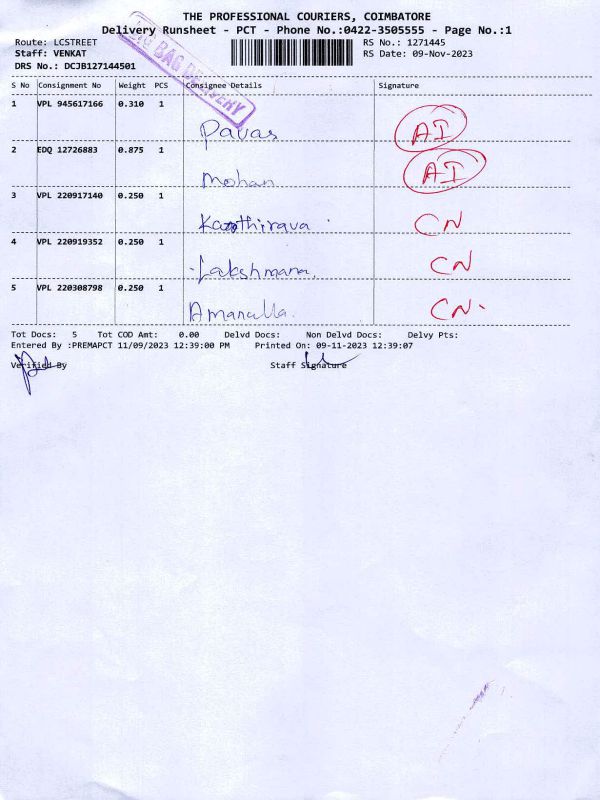 THE PROFESSIONAL COURIERS, COIMBATORE
Delivery Runsheet - PCT - Phone No.:0422-3505555 - Page No.:1
Route: LCSTREET RS No.: 1271445
Staff: VENKAT RS Date: 09-Nov-2023
DRS No.: DCJB127144501
BAG DELIVERY
S No Consignment No Weight PCS Consignee Details Signature
1 VPL 945617166 0.310 1
Pavas AI
2 EDQ 12726883 0.875 1
Mohan AI
3 VPL 220917140 0.250 1
Kanthirava CN
4 VPL 220919352 0.250 1
Lakshmana. CN
5 VPL 220308798 0.250 1
Amanulla. CN.
Tot Docs: 5 Tot COD Amt: 0.00 Delvd Docs: Non Delvd Docs: Delvy Pts:
Entered By :PREMAPCT 11/09/2023 12:39:00 PM Printed On: 09-11-2023 12:39:07
Verified By Staff Signature